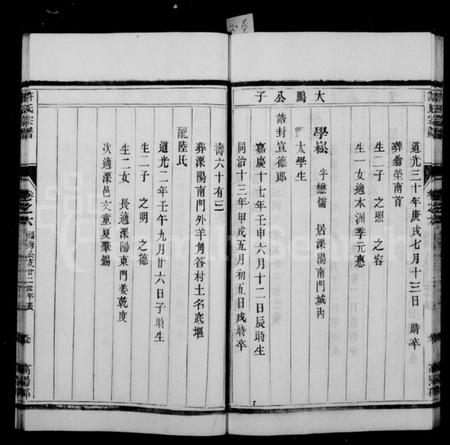 大鵬公子
道光三十年庚戌七月十三日 時卒
葬翁榮南首
生二子 之照 之容
生一女 適本洲季元惠
學松 字懋儒 居溧陽南門城內
太學生
誥封宣德郎
嘉慶十七年壬申六月十二日辰時生
同治十三年甲戌五月初五日戌時卒
壽六十有三
葬溧陽南門外羊角谷村土名底堰
配陸氏
道光二年壬午九月廿六日子時生
生二子 之明 之德
生二女 長適溧陽東門姜乾度
次適溧邑文童夏肇錫
許氏宗譜
卷之六
高陽郡